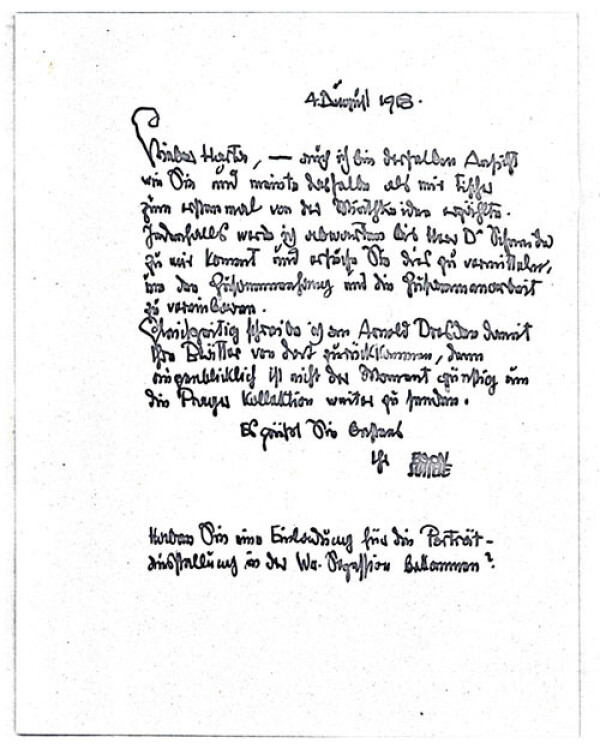 4. August 1918.
Lieber Harta, — auch ich bin derselben Ansicht
wie Sie und meinte dasselbe als mir Fischer
zum erstenmal von der Idee erzählte.
Jedenfalls werde ich abwarten bis Herr Dr
zu mir kommt und ersuche Sie dies zu vermitteln,
um den und die Zusammenarbeit
zu vereinbaren.
Gleichzeitig schreibe ich an Arnold Dresden damit
Ihre Blätter von dort zurückkommen, denn
augenblicklich ist nicht der Moment günstig um
die Prager Kollektion weiter zu senden.
Es grüßt Sie bestens
Ihr EGON
SCHIELE
Haben Sie eine Einladung für die Porträt-
ausstellung in der Wr. Sezession bekommen?